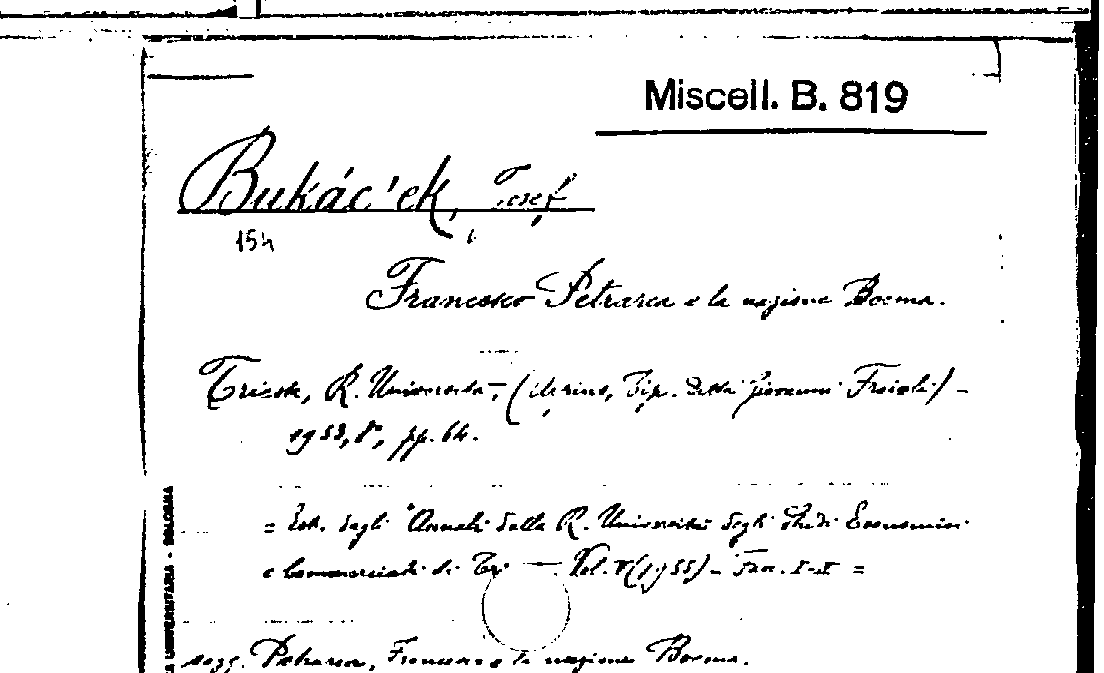 Miscell. B. 819
Bukác'ek, Josef
154
Francesco Petrarca e la nazione Boema.
Trieste, R. Università, (Urbino, Tip. della Giovanni Fraioli) -
1933, 8°, pp. 64.
= Estr. dagli "Annali della R. Università degli Studi Economici
e Commerciali di Vol. V (1933) - Fasc. I-II =
UNIVERSITARIA - BOLOGNA
sogg. Petrarca, Francesco e la nazione Boema.